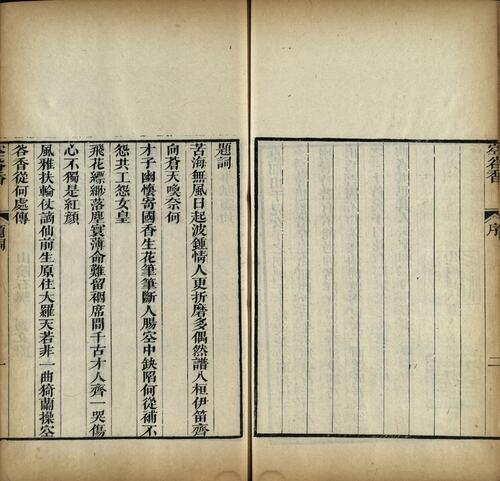 空谷香
序
二
題詞
苦海無風日起波鍾情人更折磨多偶然譜入桓伊笛齊
向蒼天喚奈何
才子幽懷寄國香生花筆筆斷人腸空中缺陷何從補不
怨共工怨女皇
飛花縹緲落塵寰薄命難留裀席間千古才人齊一哭傷
心不獨是紅顏
風雅扶輪仗謫仙前生原住大羅天若非一曲猗蘭操空
谷香從何處傳
空谷香
題詞
一